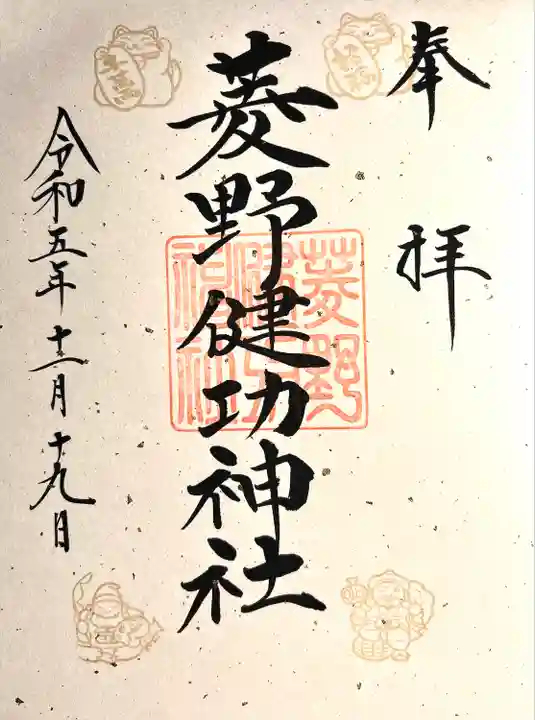 奉拝
菱野健功神社
菱野
健功
神社
令和五年十一月十九日